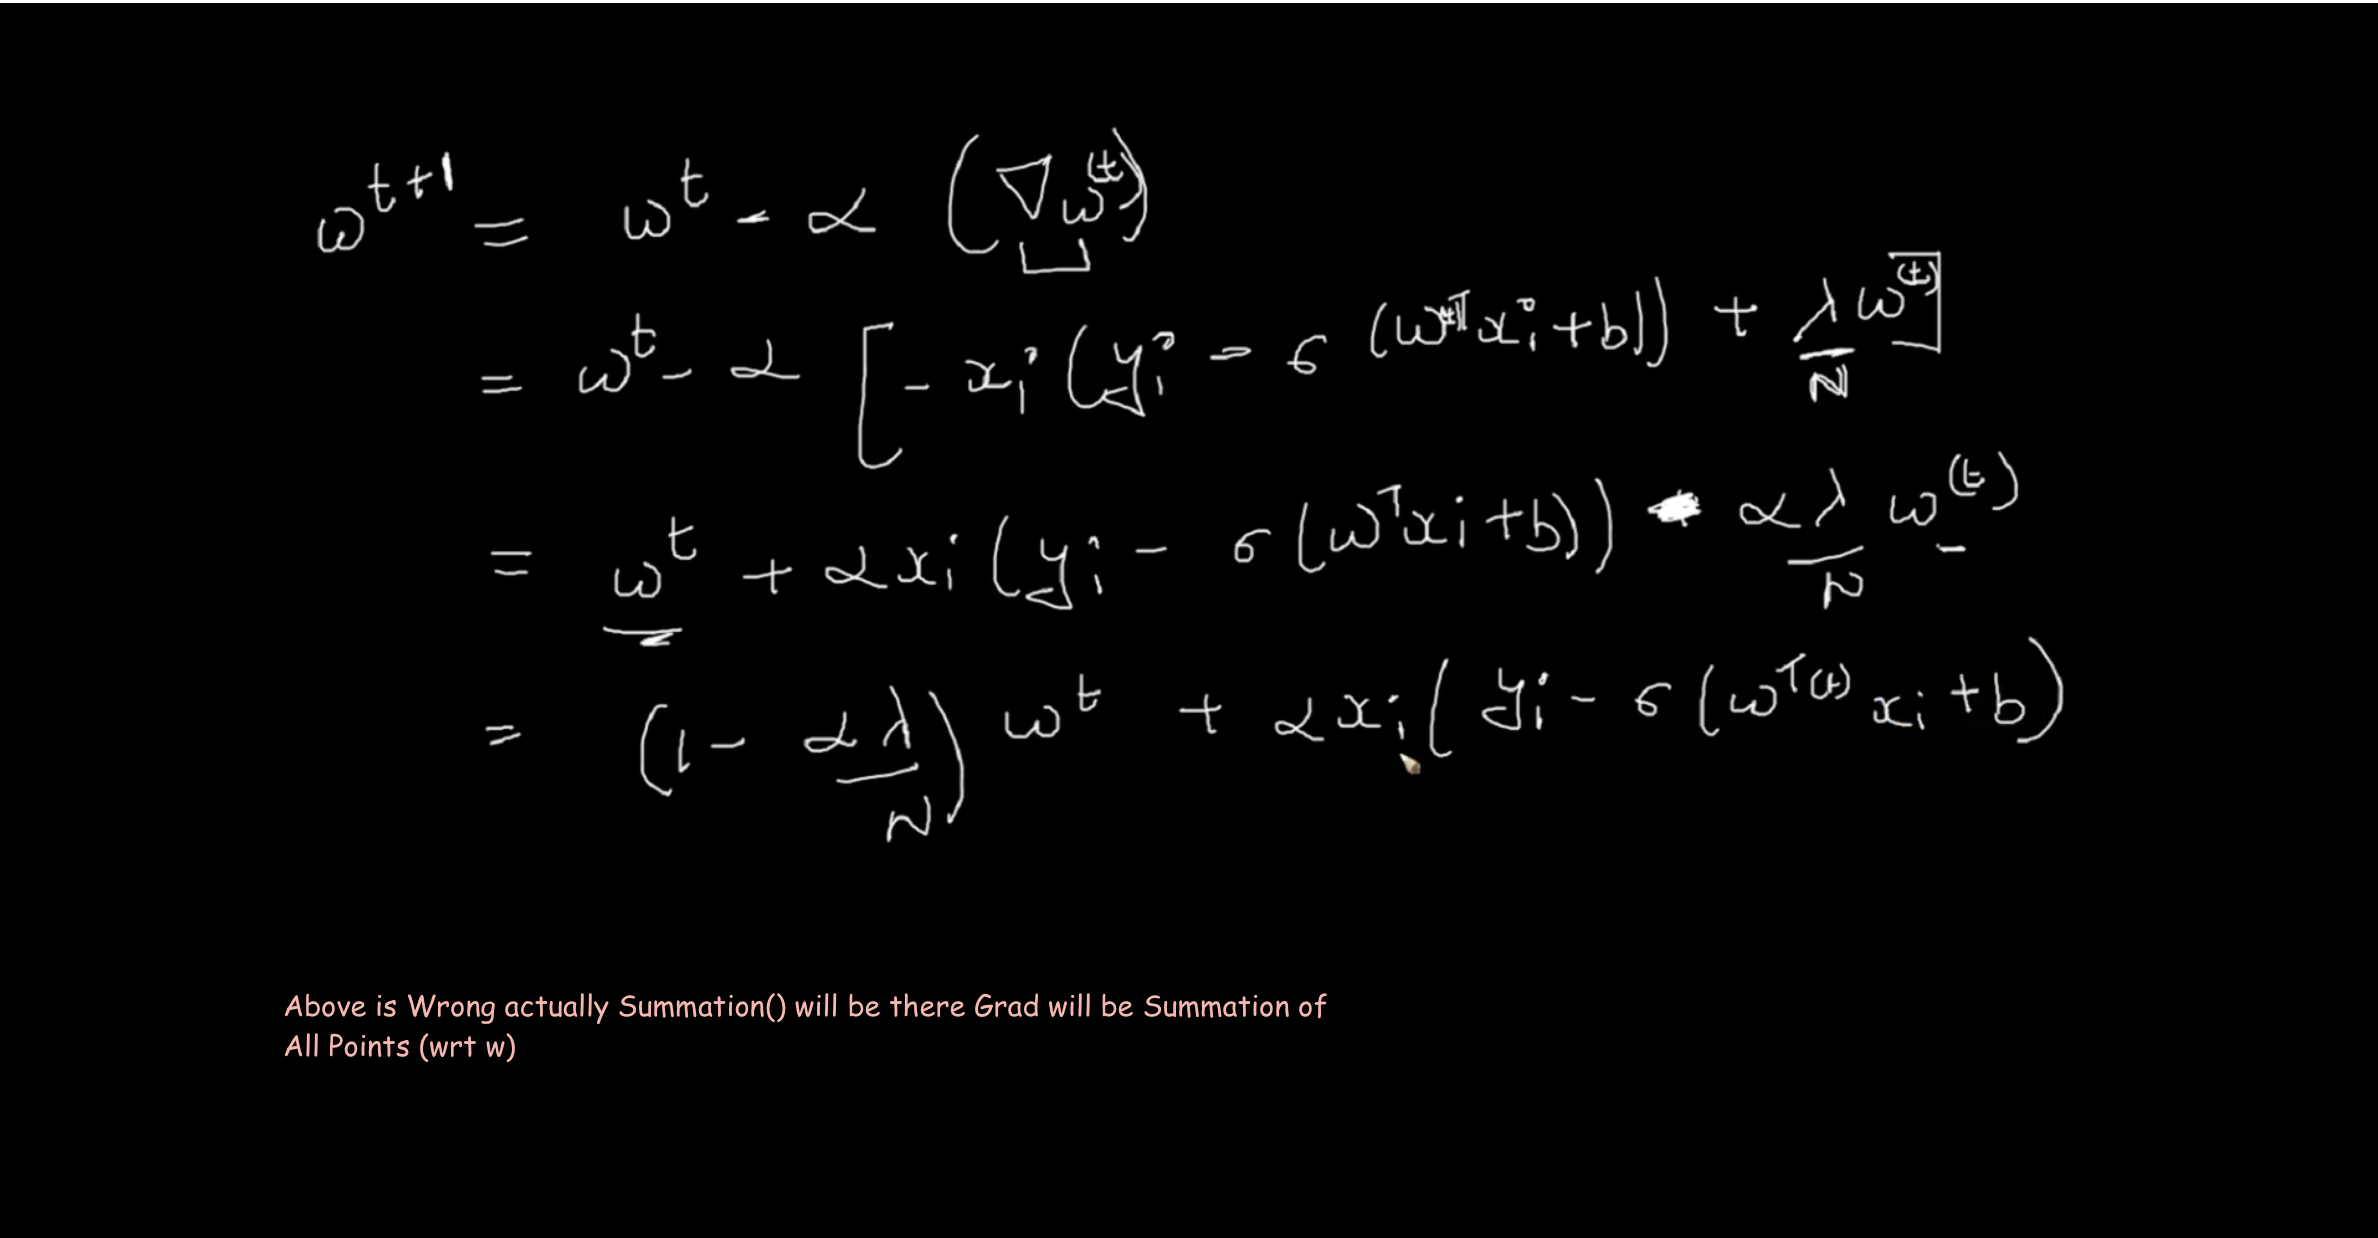 w^{t+1} = w^t - α (∇w^{(t)})
= w^t - α [ - x_i (y_i - σ (w^{(t)T} x_i + b)) + λ/N w^{(t)} ]
= w^t + α x_i (y_i - σ (w^T x_i + b)) - αλ/N w^{(t)}
= (1 - αλ/N) w^t + α x_i ( y_i - σ (w^{T(t)} x_i + b)
Above is Wrong actually Summation() will be there Grad will be Summation of
All Points (wrt w)